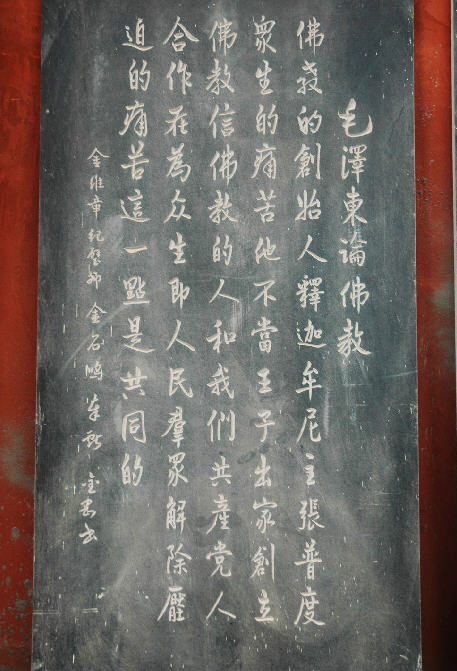 毛澤東論佛教
佛教的創始人釋迦牟尼主張普度
衆生的痛苦他不當王子出家創立
佛教信佛教的人和我們共產党人
合作在為众生即人民羣眾解除壓
迫的痛苦這一點是共同的
金維章紀 金石鳴 金書